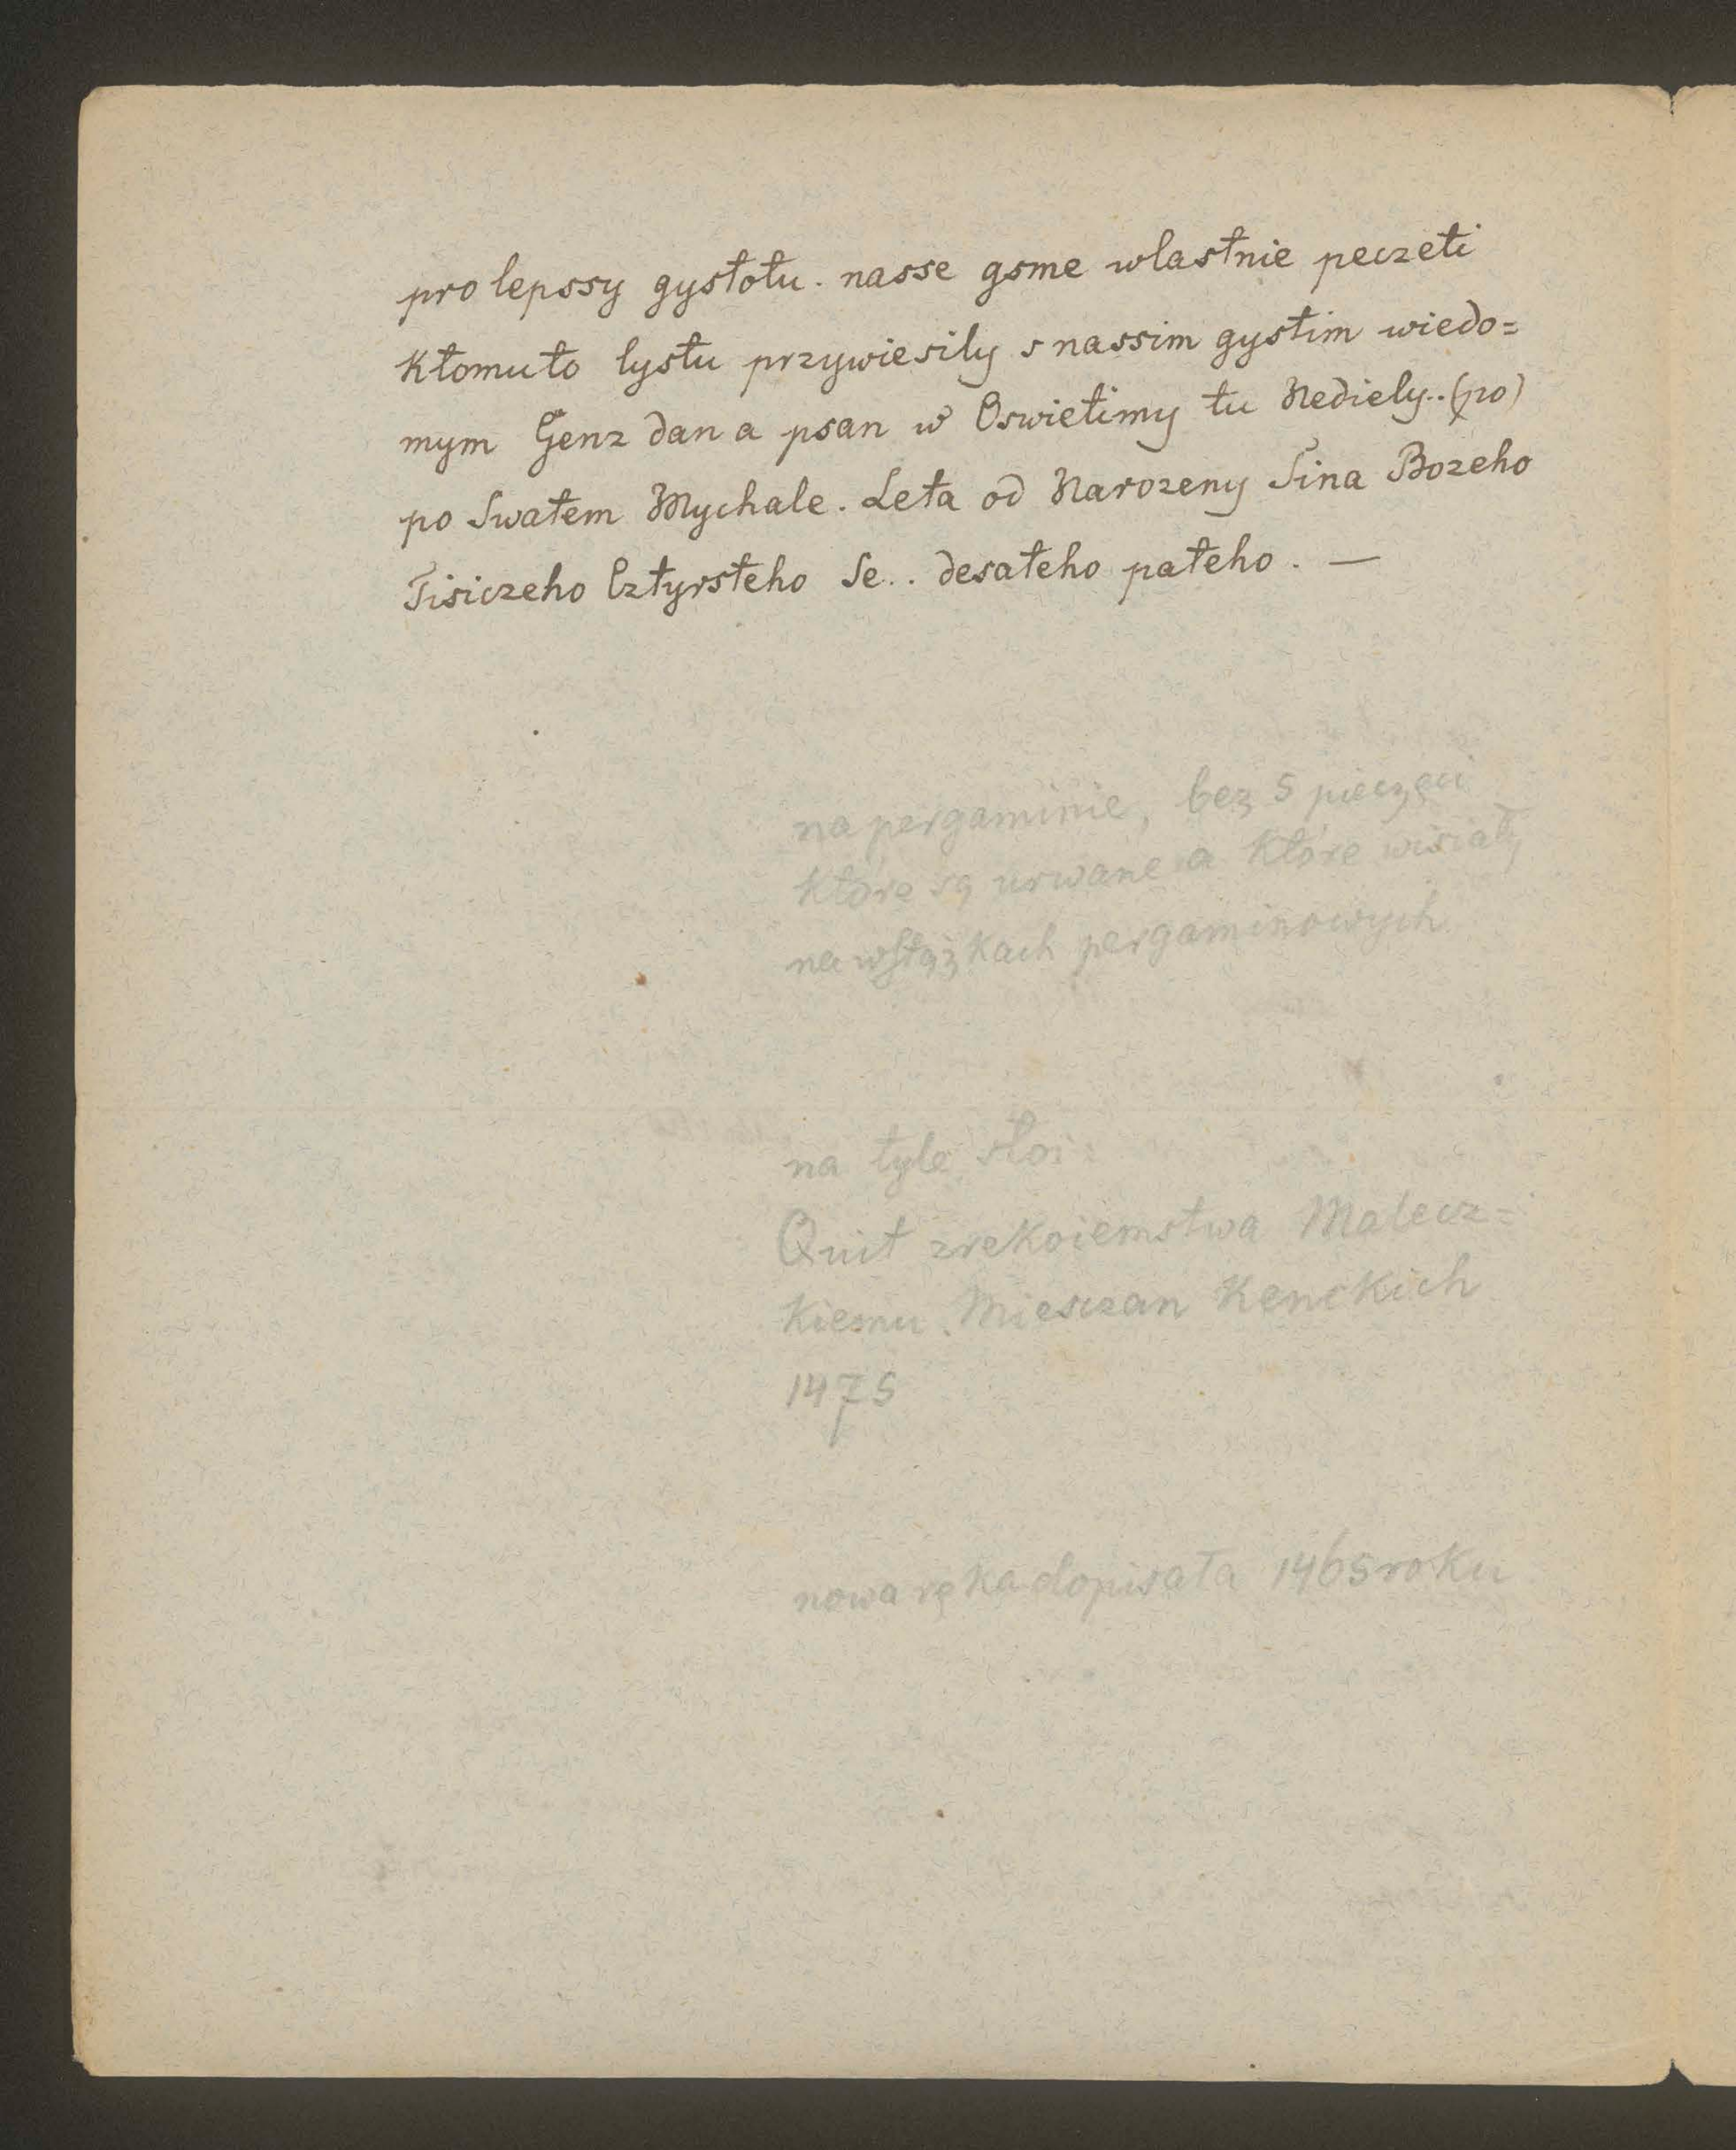 pro lepssy gystotu. nasse gsme wlastnie peczeti
ktomuto lystu przywiesily s nassim gystim wiedo=
mym Genz dan a psan w Oswietimy tu Nediely..(po)
po Swatem Mychale. Leta od Narozeny Sina Bozeho
Tisiczeho Cztyrsteho Se.. desateho pateho. —
na pergaminie, bez 5 pieczęci
które są urwane a które wisiały
na wstążkach pergaminowych
na tyle stoi:
Quit zrekoiemstwa Malecz=
kiemu. Miesczan Kenckich
1475
nowa ręka dopisała 1465 roku